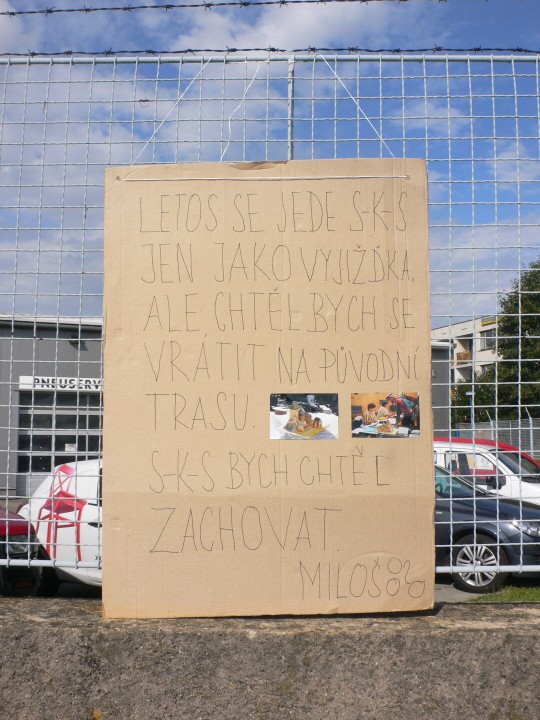 LETOS SE JEDE S-K-S
JEN JAKO VYJIŽĎKA,
ALE CHTĚL BYCH SE
VRÁTIT NA PŮVODNÍ
TRASU.
S-K-S BYCH CHTĚL
ZACHOVAT.
MILOŠ
PNEUSERV